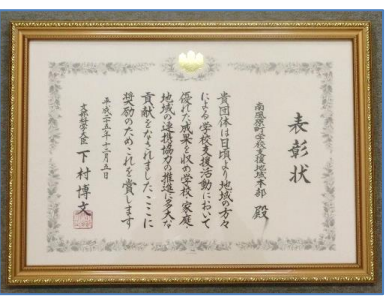 表彰状
南風原町学校支援地域本部 殿
貴団体は日頃より地域の方々
による学校支援活動において
優れた成果を収め学校家庭
地域の連携協力の推進に多大な
貢献をなされました、ここに
奨励のためこれを賞します
平成二十五年十二月五日
文部科学大臣 下村博文